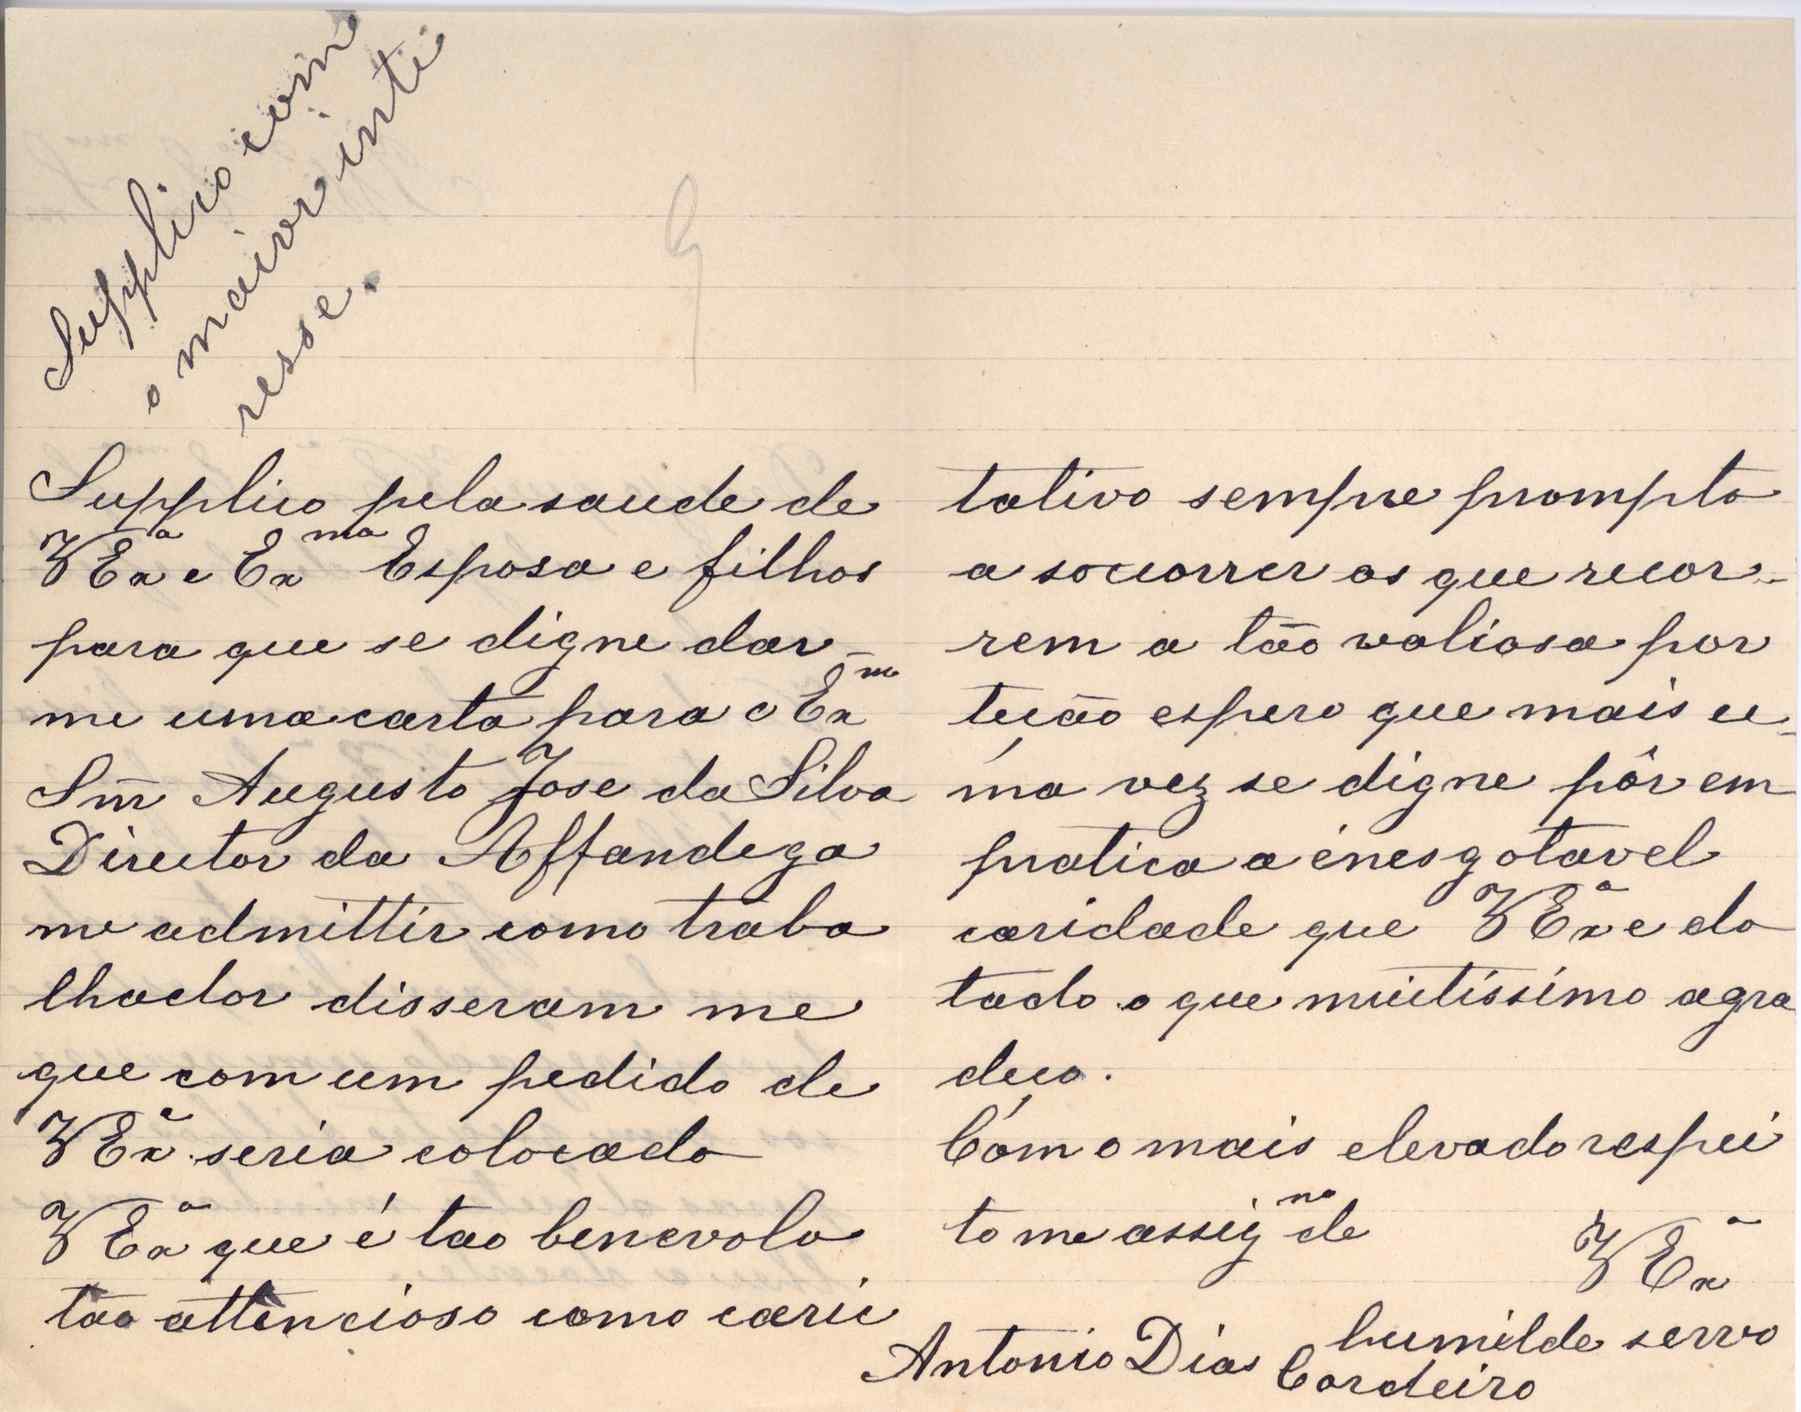 Supplico com
o maior inte
resse.
Supplico pela saude de
V Exª e Exma Esposa e filhos
para que se digne dar-
me uma carta para o Exmo
Snr Augusto Jose da Silva
Director da Affandega
me admittir como traba
lhador disseram me
que com um pedido de
V Exª seria colocado
V Exª que é tao benevolo
tão attencioso como cari
tativo sempre prompto
a socorrer os que recor-
rem a tão valiosa por
tecão espero que mais u-
ma vez se digne pôr em
pratica a inesgotavel
caridade que V Exª e do
tado o que muitissimo agra
deço.
Com o mais elevado respei
to me assigno de
V Exª
humilde servo
Antonio Dias Cordeiro